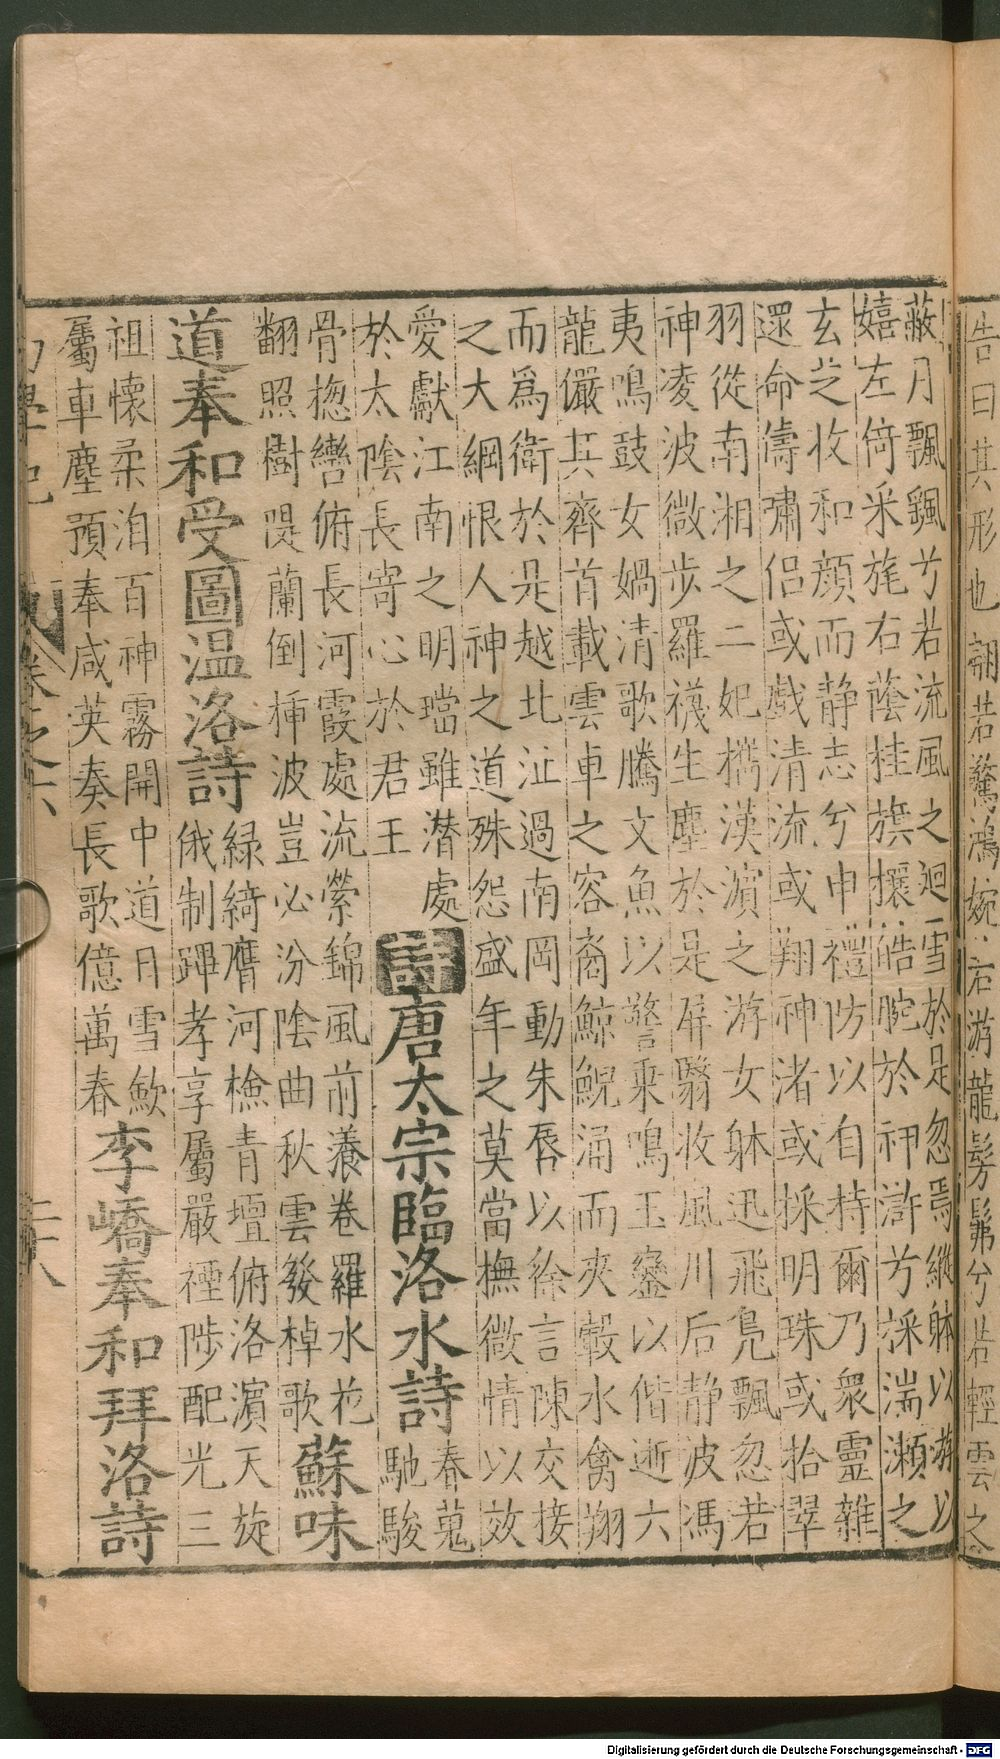 告曰其形也翩若驚鴻婉若游龍髣髴兮若輕雲之
蔽月飄颻兮若流風之迴雪於是忽焉縱躰以遊以
嬉左倚采旄右蔭桂旗攘皓腕於神滸兮採湍瀬之
玄芝收和顔而静志兮申禮防以自持爾乃衆靈雜
遝命儔嘯侣或戲清流或翔神渚或採明珠或拾翠
羽從南湘之二妃攜漢濵之游女躰迅飛鳬飄忽若
神凌波微步羅襪生塵於是屏翳收風川后静波馮
夷鳴鼓女媧清歌騰文魚以警乗鳴玉鑾以偕逝六
龍儼其齊首載雲車之容裔鯨鯢涌而夾轂水禽翔
而爲衛於是越北沚過南岡動朱唇以徐言陳交接
之大綱恨人神之道殊怨盛年之莫當撫微情以效
愛獻江南之明璫雖潜處
於太隂長寄心於君王
詩唐太宗臨洛水詩
春蒐
馳駿
骨揔轡俯長河霞處流縈錦風前瀁卷羅水花
翻照樹隄蘭倒揷波豈必汾隂曲秋雲發棹歌
蘇味
道奉和受圖温洛詩
緑綺膺河檢青壇俯洛濵天旋
俄制蹕孝享屬嚴禋陟配光三
祖懷柔洎百神霧開中道日雪歛
屬車塵預奉咸英奏長歌億萬春
李嶠奉和拜洛詩
卷之六
二十八
Digitalisierung gefördert durch die Deutsche Forschungsgemeinschaft - DFG